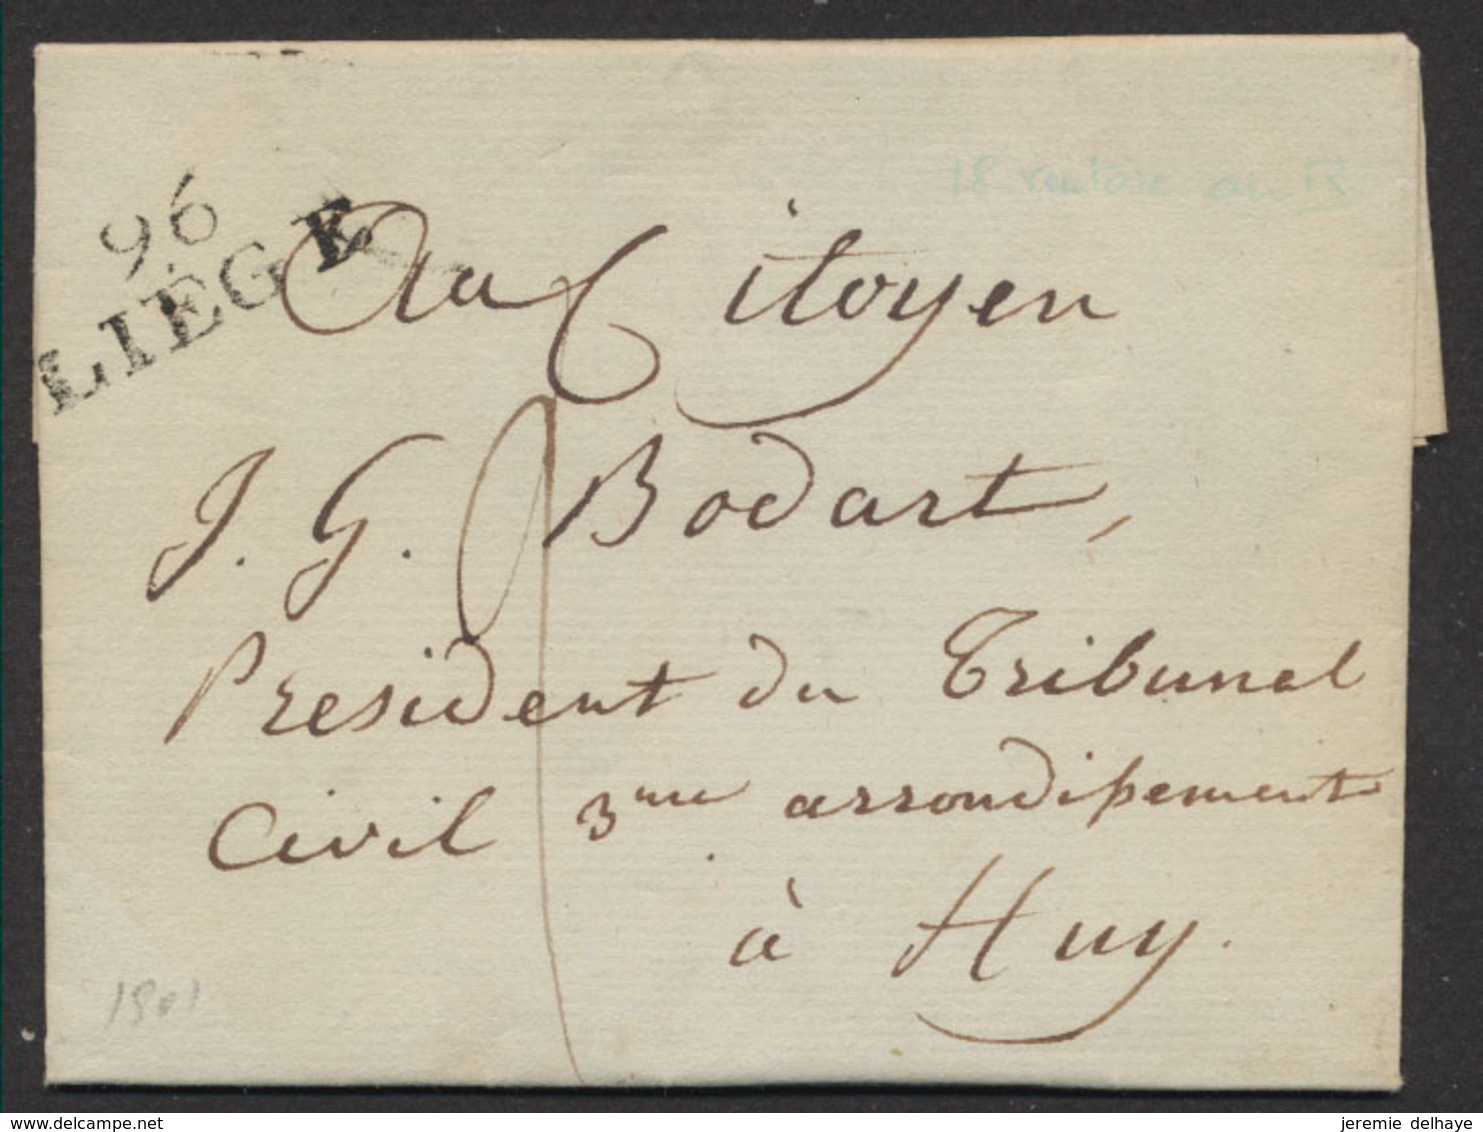 18 ventose an IX
96
LIÉGE
Au Citoyen
J. G. Bodart,
President du Tribunal
Civil 3me arrondissement
à Huy.
1801
delcampe.net
jeremie delhaye